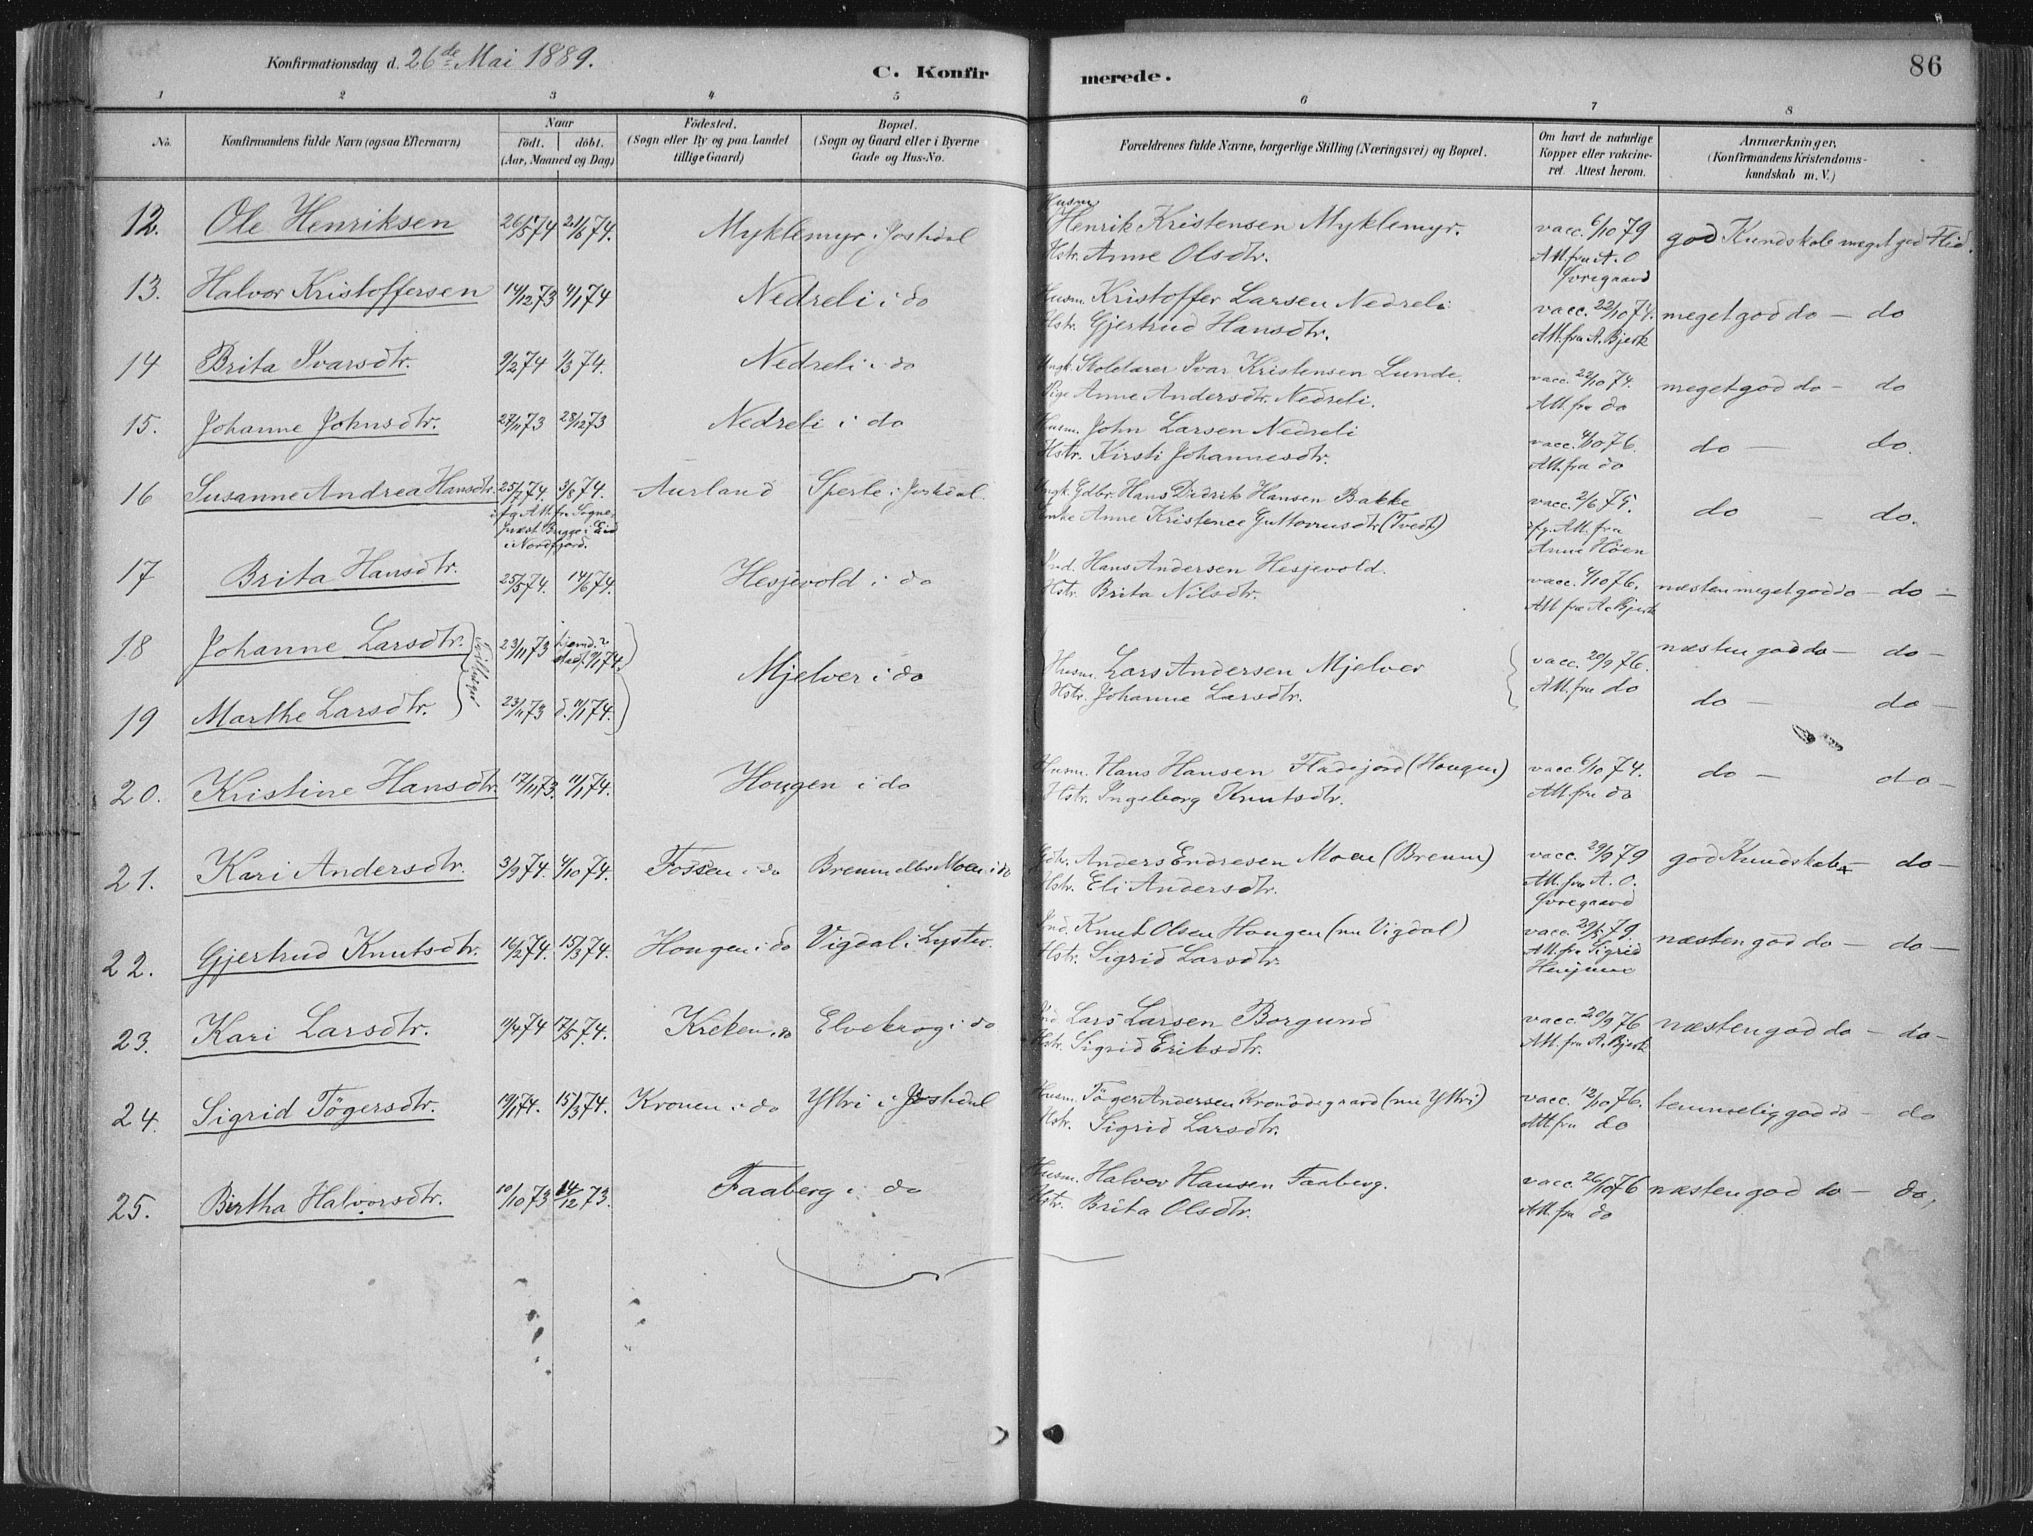 Konfirmationsdag d. 26de Mai 1889.
C. Konfirmerede.
86
1 2 3 4 5 6 7 8
No.
Konfirmandens fulde Navn (ogsaa Efternavn)
Naar
födt. döbt.
(Aar, Maaned og Dag)
Födested.
(Sogn eller By og paa Landet
tillige Gaard)
Bopæl.
(Sogn og Gaard eller i Byerne
Gade og Hus-No.
Forældrenes fulde Navne, borgerlige Stilling (Næringsvei) og Bopæl.
Om havt de naturlige
Kopper eller vakcine-
ret. Attest herom.
Anmærkninger.
(Konfirmandens Kristendoms-
kundskab m. V.)
12. Ole Henriksen 26/5 74 21/6 74. Myklemyr i Jostedal
Husm. Henrik Kristensen Myklemyr.
Hstr. Anne Olsdtr.
vacc. 6/10 79
Att. fra A. O
Øvregaard
god Kundskab meget god Flid.
13. Halvor Kristoffersen 14/12 73 4/1 74 Nedreli i do
Husm. Kristoffer Larsen Nedreli
Hstr. Gjertrud Hansdtr.
vacc. 22/10 74.
Att. fra A. Bjerk
meget god do – do
14 Brita Ivarsdtr. 9/2 74 1/3 74. Nedreli i do
Ungk. Skolelærer Ivar Kristensen Lunde.
Pige Anne Andersdtr. Nedreli.
vacc. 22/10 74.
Att. fra do
meget god do – do
15. Johanne Johnsdtr. 27/11 73 28/12 73 Nedreli i do
Husm. John Larsen Nedreli
Hstr. Kirsti Johannesdtr.
vacc. 4/10 76.
Att. fra do
do – do.
16 Susanne Andrea Hansdtr. 25/7 74. 3/8 74. Aurland Sperle i Jostedal.
i fg. Att. fr. Sogne-
præst Bugge i Eid
i Nordfjord.
Ungk. Gdbr. Hans Didrik Hansen Bakke
Enke Anne Kristence Guttormsdtr (Tvedt)
vacc. 2/6 75.
ifg. Att. fra
Anne Höen
do – do.
17 Brita Hansdtr. 25/5 74. 14/6 74. Hesjevold i do
Ind. Hans Andersen Hesjevold.
Hstr. Brita Nilsdtr.
vacc. 4/10 76.
Att. fra A. Bjerk
næsten meget god do – do –
18 Johanne Larsdtr. 23/11 73 hjemd. stadf. 11/1 74. Tvillinger
Mjelver i do
Husm. Lars Andersen Mjelver
Hstr. Johanne Larsdtr.
vacc. 20/9 76.
Att. fra do
næsten god do – do –
19 Marthe Larsdtr. 23/11 73 d. 11/1 74.
do – do –
20. Kristine Hansdtr 17/11 73. 11/1 74. Hougen i do
Husm. Hans Hansen Fladejord (Hougen)
Hstr. Ingeborg Knutsdtr.
vacc. 6/10 74.
Att. fra do
do – do –
21. Kari Andersdtr. 3/9 74. 4/10 74. Fossen i do Breum eller Moen i do
Anders Endresen Moen (Breum)
Hstr. Eli Andersdtr.
vacc. 29/9 79
Att. fra A. O.
Øvregaard
god Kundskab – do –
22. Gjertrud Knutsdtr. 16/2 74. 15/3 74. Hougen i do Vigdal i Lyster.
Ind. Knut Olsen Hougen (nu Vigdal)
Hstr. Sigrid Larsdtr.
vacc. 29/5 79
Att. fra Sigrid
Henjum
næsten god do – do –
23. Kari Larsdtr. 11/4 74 17/5 74. Kreken i do Elvekrog i do
Ind Lars Larsen Borgund
Hstr. Sigrid Eriksdtr.
vacc. 20/9 76
Att. fra A. Bjerk
næsten god do – do –
24. Sigrid Tögersdtr. 19/1 74. 15/3 74. Kronen i do Yttri i Jostedal
Husm. Töger Andersen Kronödegaard (nu Yttri)
Hstr. Sigrid Larsdtr.
vacc. 12/10 76.
Att fra do
temmelig god do – do
25. Birtha Halvorsdtr. 10/10 73 14/12 73. Faaberg i do
Husm. Halvor Hansen Faaberg.
Hstr. Brita Olsdtr.
vacc. 26/10 76
Att. fra do
næsten god do – do,